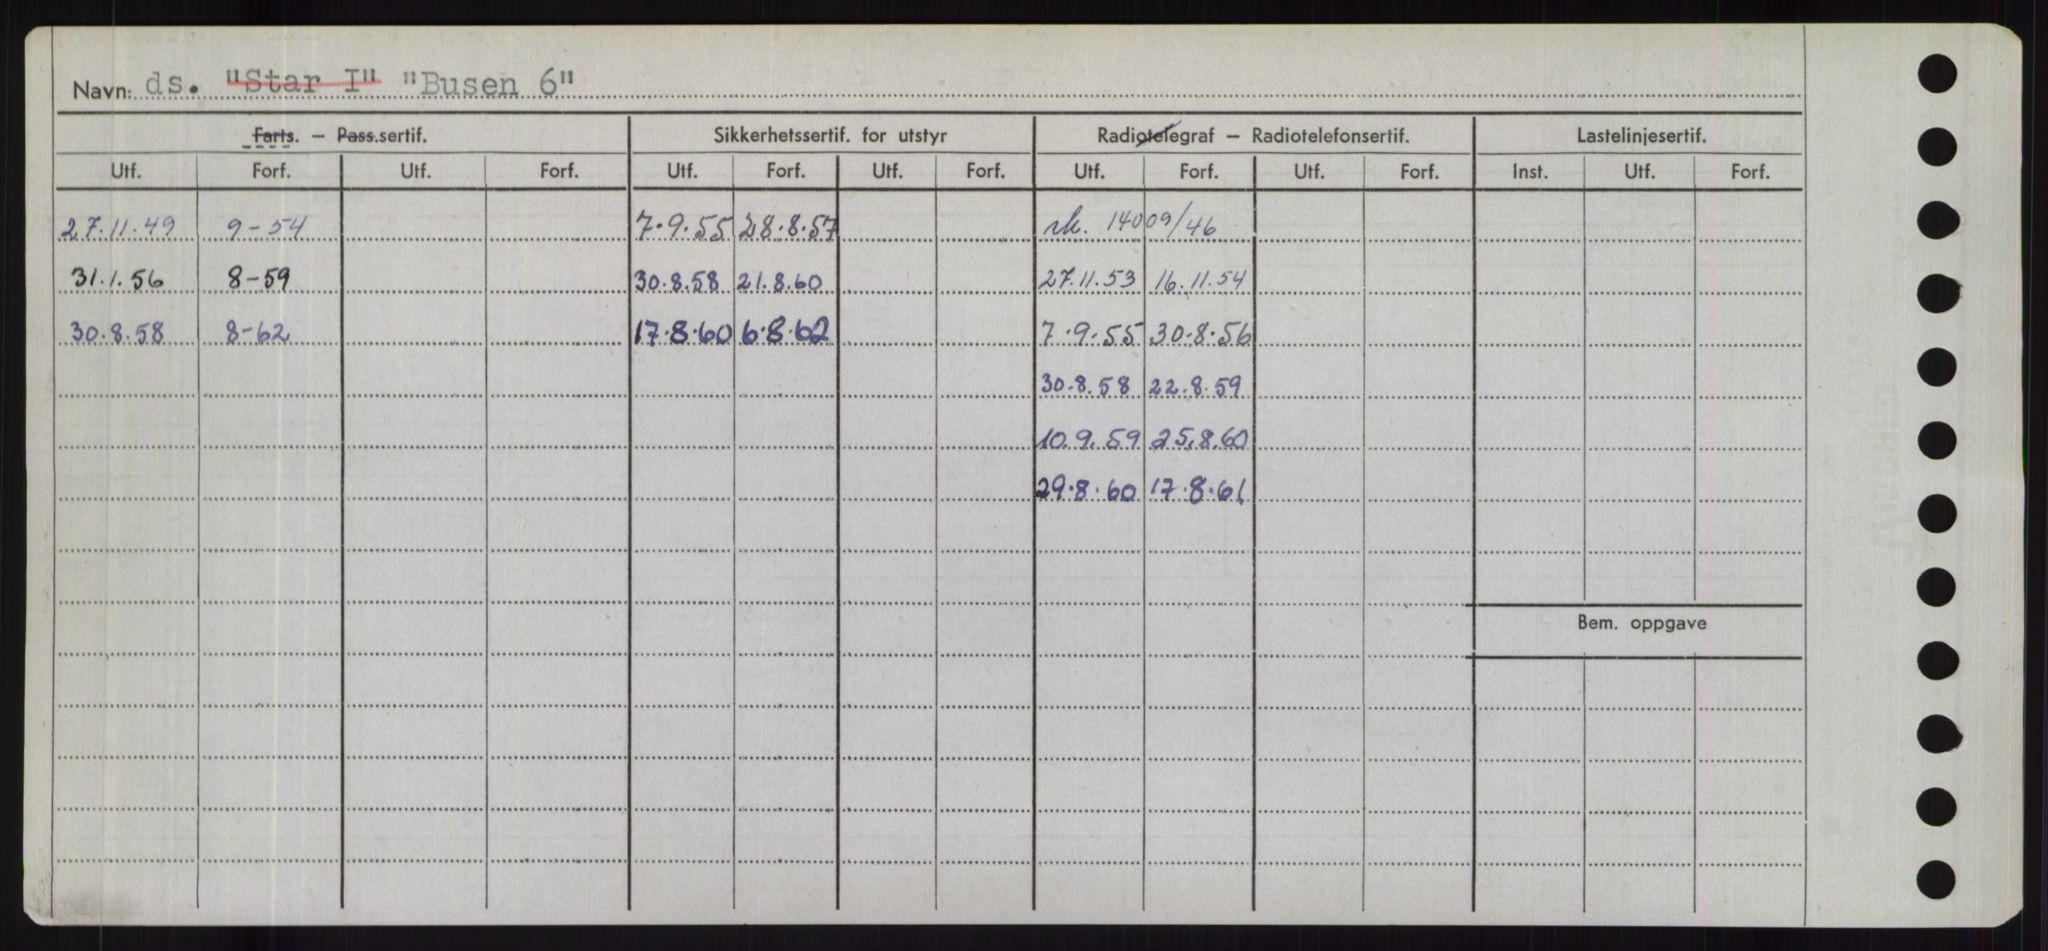 Navn: ds. "Star I" "Busen 6"
Farts. — Pass.sertif. Sikkerhetssertif. for utstyr Radiotelegraf — Radiotelefonsertif. Lastelinjesertif.
Utf. Forf. Utf. Forf. Utf. Forf. Utf. Forf. Utf. Forf. Utf. Forf. Inst. Utf. Forf.
27.11.49 9-54 7.9.55 28.8.57 rk. 14009/46
31.1.56 8-59 30.8.58 21.8.60 27.11.53 16.11.54
30.8.58 8-62 17.8.60 6.8.62 7.9.55 30.8.56
30.8.58 22.8.59
10.9.59 25.8.60
29.8.60 17.8.61
Bem. oppgave